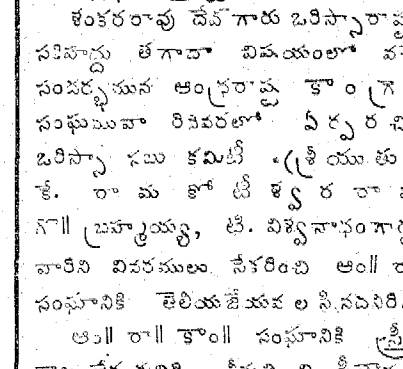 శంకరరావు దేవ్ గారు ఒరిస్సారా
సరిహద్దు తగాదా విషయంలో
సందర్భమున ఆంధ్రరాష్ట్ర కాం గ్రె
సంఘమువా రినివరలో ఏర్పర చి
ఒరిస్సా సబు కమిటీ (శ్రీ యు తు
కే. రా మ కో టీ శ్వ ర రా
గొ॥ బ్రహ్మయ్య, టి. విశ్వనాథం గా
వారిని వివరములు సేకరించి ఆం॥ రా
సంఘానికి తెలియజేయవ ల సినదని
ఆం॥ రా॥ కాం॥ సంఘానికి శ్రీ